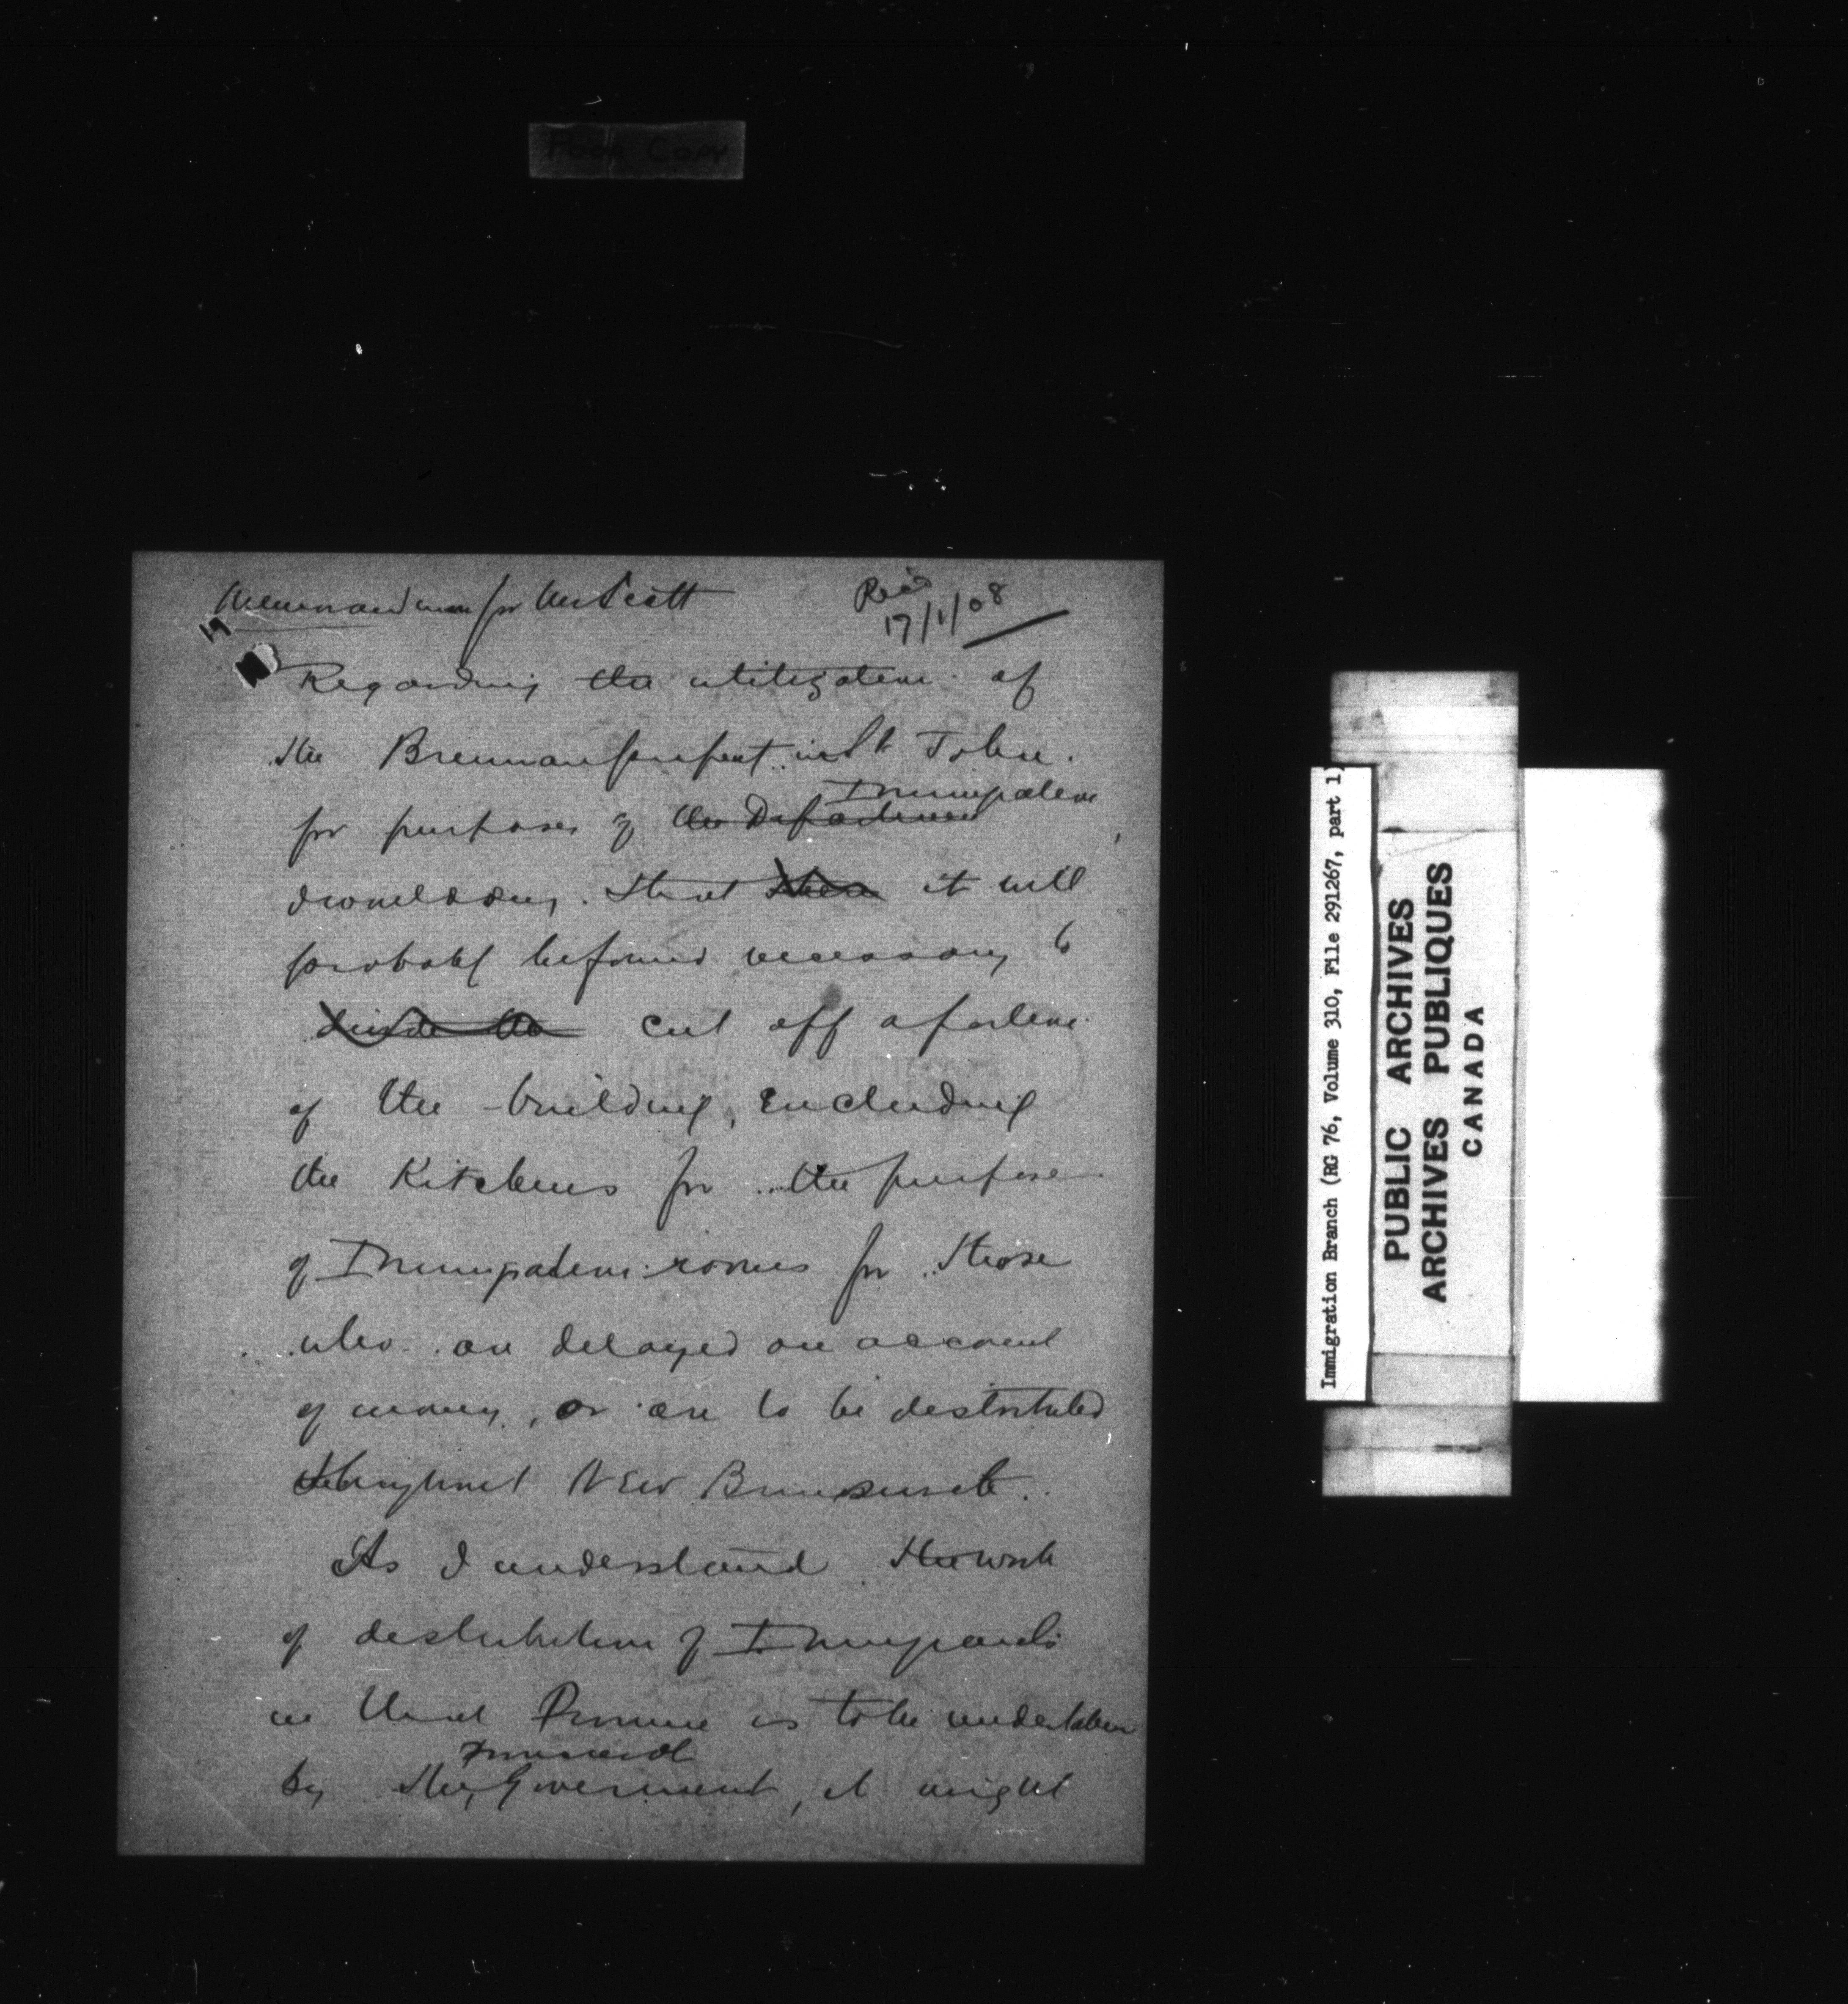 Poor Copy
Memorandum for Mr Scott
Rec'd
17/1/08
19
Regarding the utilization of
the Brennan propert in St John.
Immigration
for purposes of the Department
I would say that there it will
probably be found necessary to
divide the cut off a portion
of the building, including
the Kitchens for the purpose
of Immigration rooms for those
who are delayed on account
of money, or are to be distributed
throughout New Brunswick.
As I understand the work
of distribution of Immigrants
in that Province is to be undertaken
Provincial
by the Government, it might
Immigration Branch (RG 76, Volume 310, File 291267, part 1)
PUBLIC ARCHIVES
ARCHIVES PUBLIQUES
CANADA